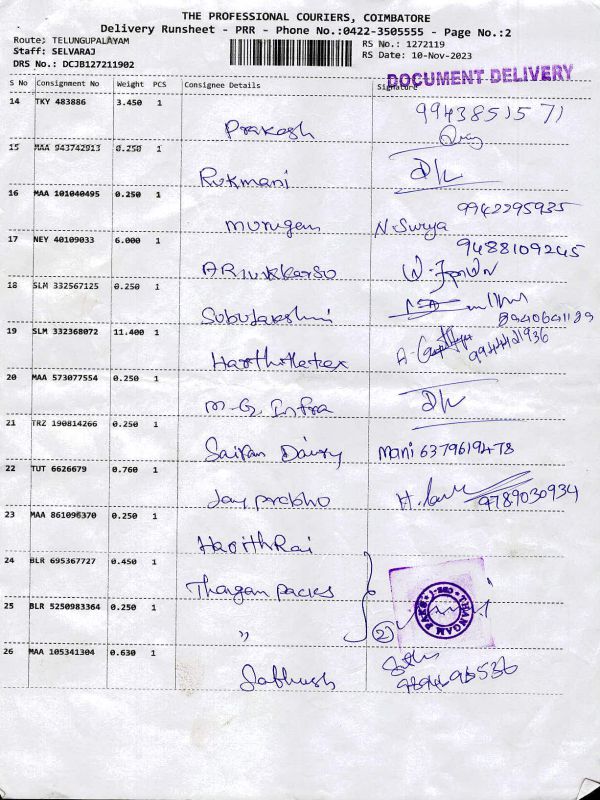 THE PROFESSIONAL COURIERS, COIMBATORE
Delivery Runsheet - PRR - Phone No.:0422-3505555 - Page No.:2
Route: TELUNGUPALAYAM
RS No.: 1272119
Staff: SELVARAJ
RS Date: 10-Nov-2023
DRS No.: DCJB127211902
DOCUMENT DELIVERY
S No Consignment No Weight PCS Consignee Details Signature
14 TKY 483886 3.450 1 Prakash 9943851571
15 MAA 943742913 0.250 1 Rukmani D/L
16 MAA 101040495 0.250 1 Murugan N. Surya 9942295935
17 NEY 40109033 6.000 1 9488109245
18 SLM 332567125 0.250 1 8940641189
19 SLM 332368072 11.400 1
20 MAA 573077554 0.250 1 M.G. Infra D/L
21 TRZ 190814266 0.250 1 Mani 6379619478
22 TUT 6626679 0.760 1 Jay prabho 9789030934
23 MAA 861096370 0.250 1 HarithRai
24 BLR 695367727 0.450 1 Thagam Packs
25 BLR 5250983364 0.250 1 " THANGAM PARK
26 MAA 105341304 0.630 1